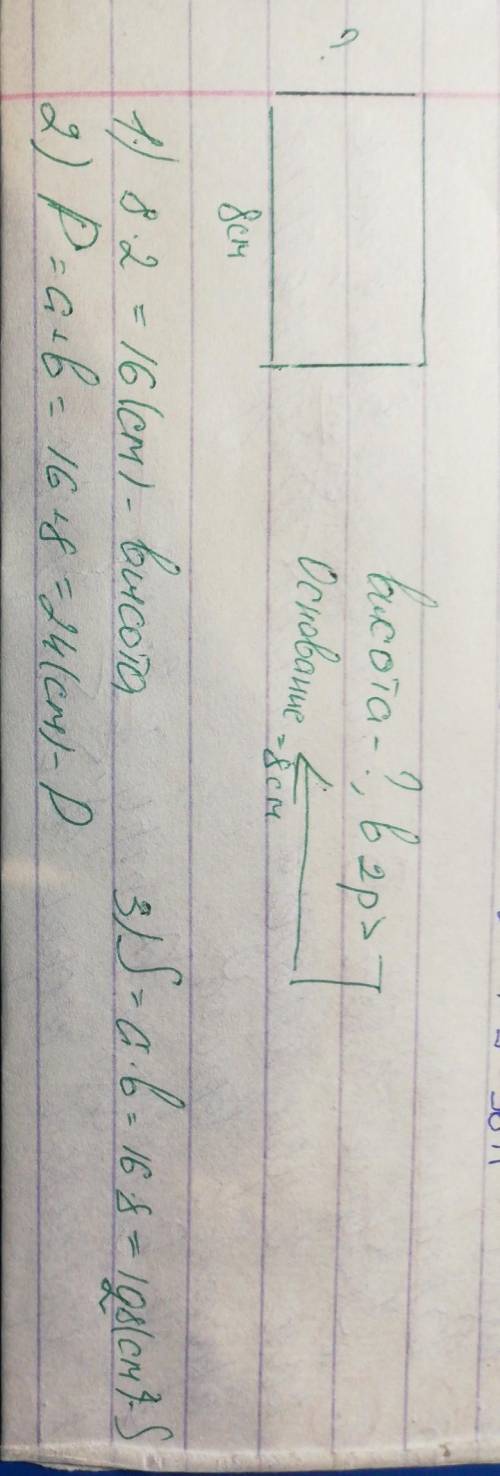 ?
8см
высота - ?, в 2р >
Основание = 8см
1.) 8 · 2 = 16(см) - высота
2) P = a + b = 16 + 8 = 24(см) - P
3) S = a · b = 16 · 8 = 128(см²) - S